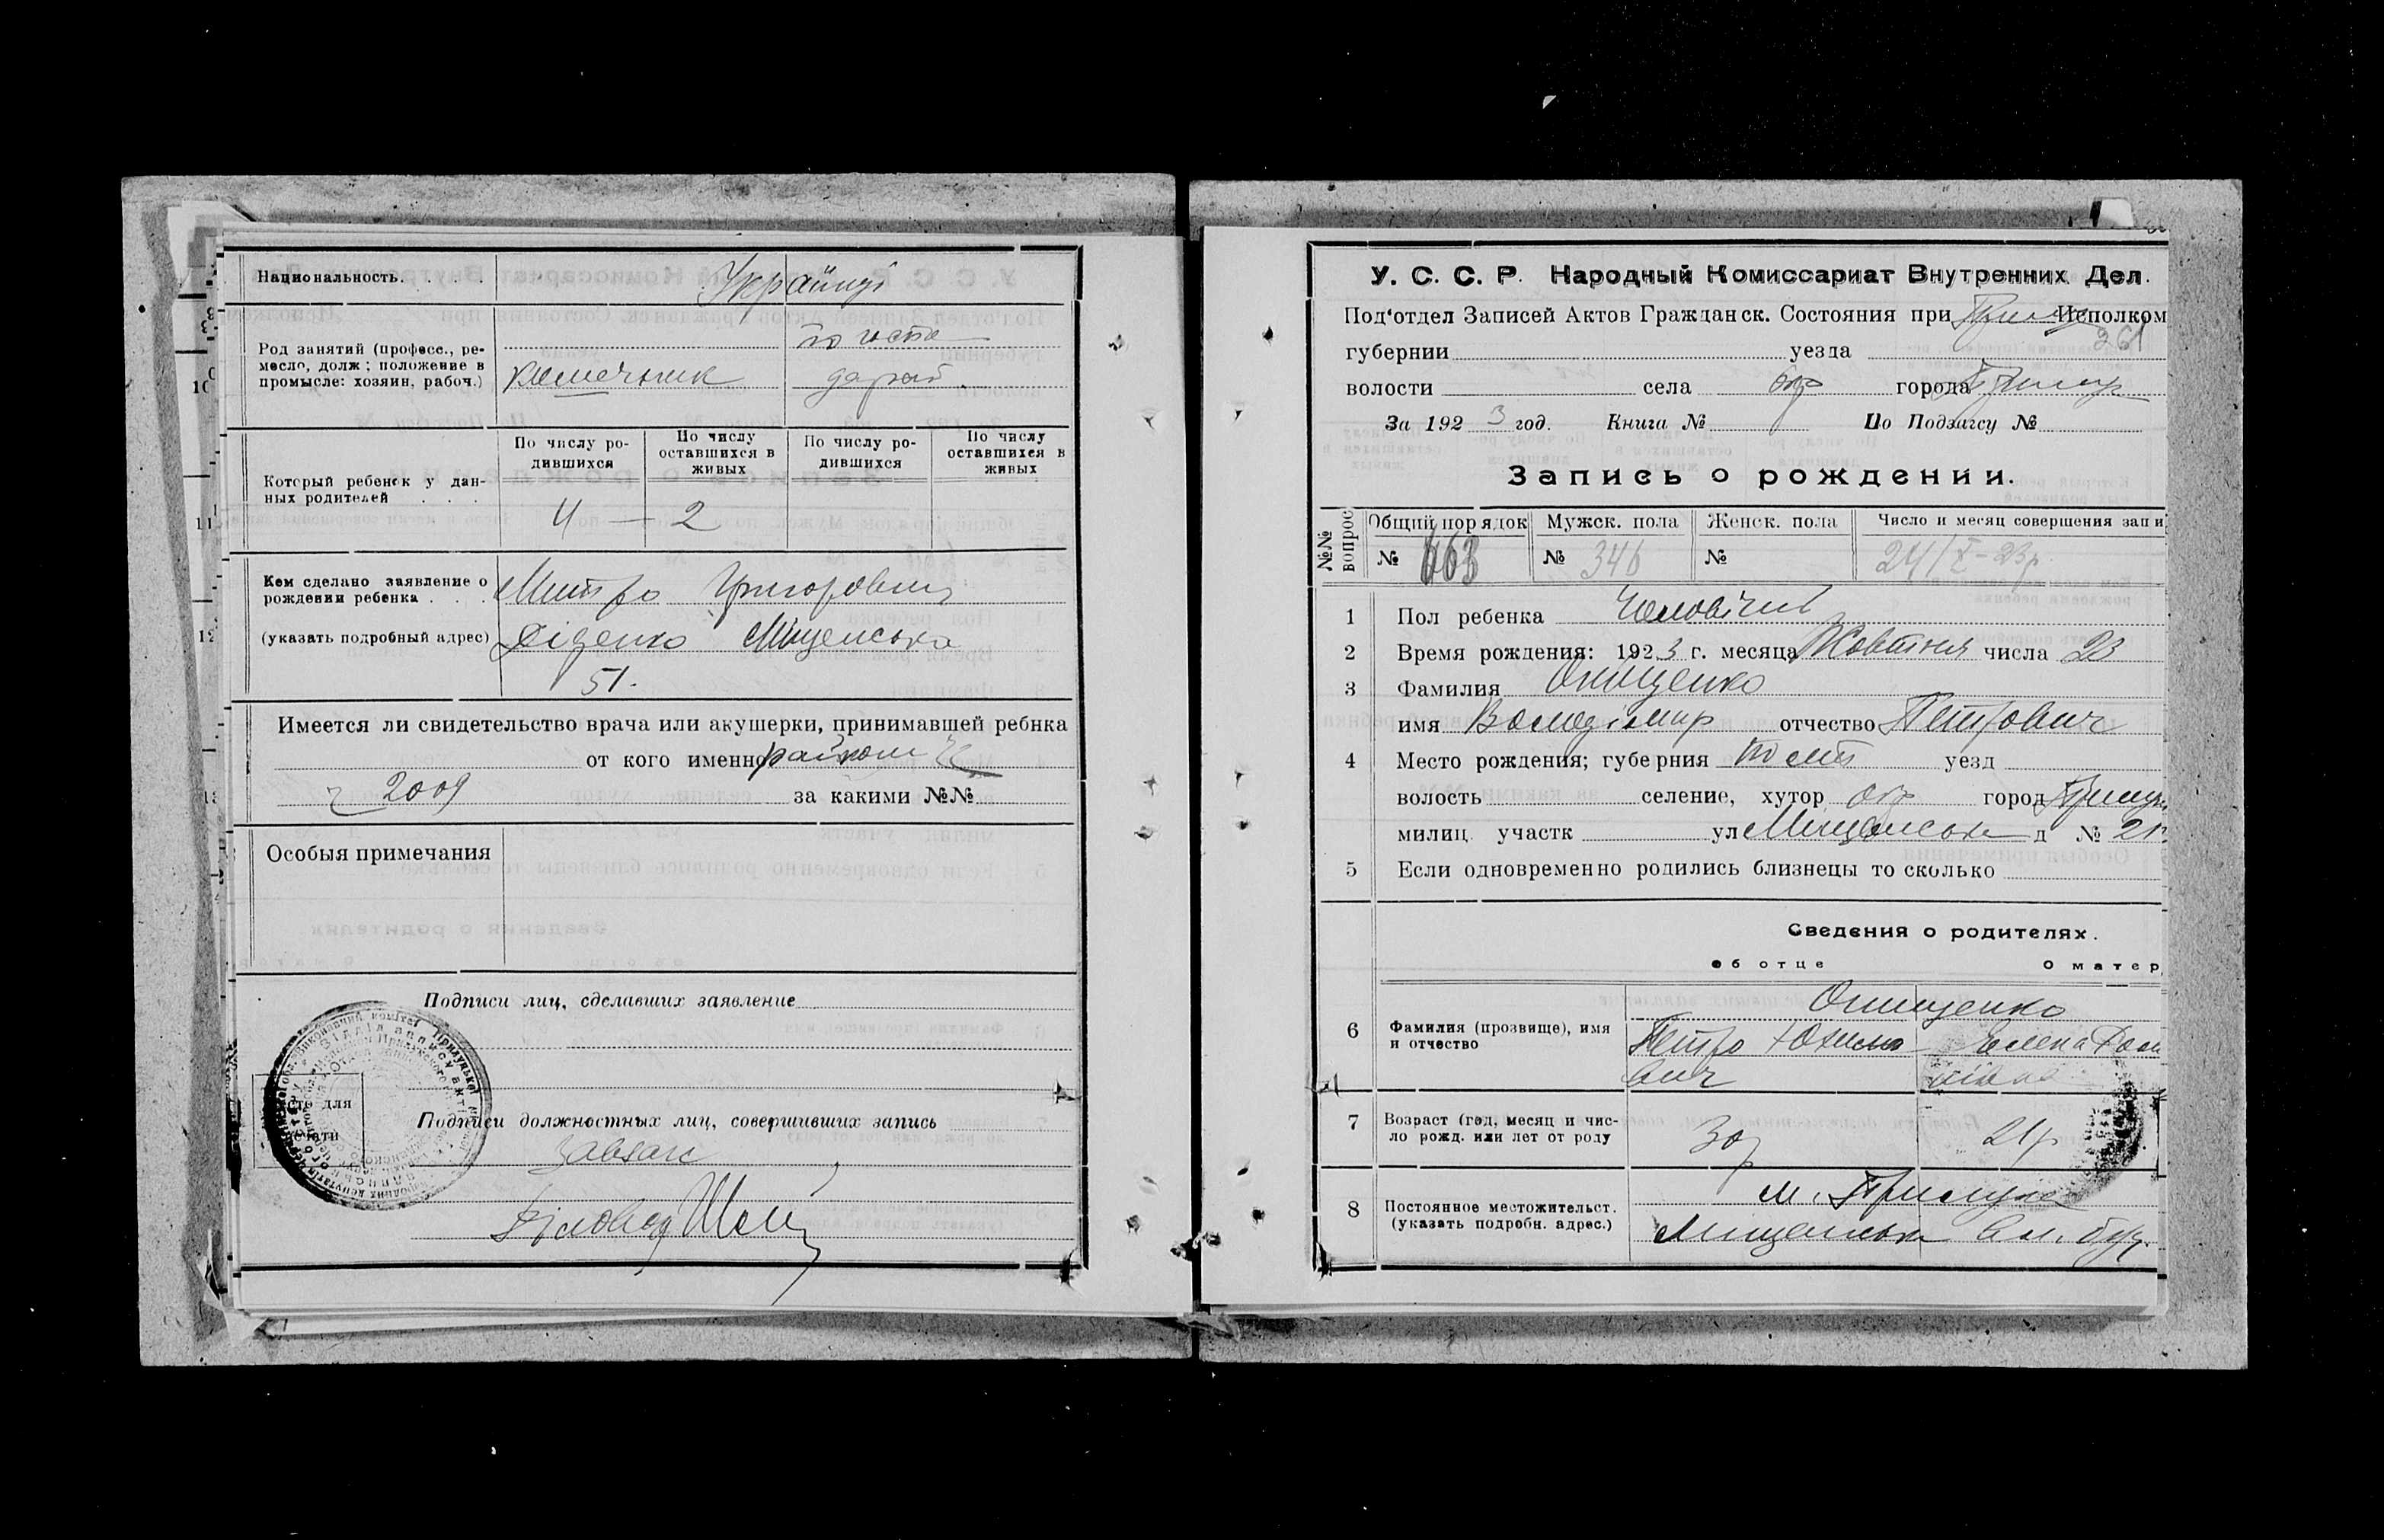 Национальность.
Українці
Род занятий (професс., ре-
месло, долж; положение в
промысле: хозяин, рабоч.)
по госпо
дарст.
Который ребенок у дан-
ных родителей
По числу ро-
дившихся
По числу
оставшихся в
живых
По числу ро-
дившихся
По числу
оставшихся в
живых
4 — 2
Кем сделано заявление о
рождении ребенка
(указать подробный адрес)
Митро Григорович
Діденко Міщенська
51.
Имеется ли свидетельство врача или акушерки, принимавшей ребнка
от кого именно
2009 за какими №№
Особыя примечания
Подписи лиц, сделавших заявление
Подписи должностных лиц, совершивших запись
Завзагс
У. С. С. Р. Народный Комиссариат Внутренних Дел.
Под'отдел Записей Актов Гражданск. Состояния при Прилуц Исполком
261
губернии уезда
волости села окр города Прилук
За 1923 год. Книга № По Подзагсу №
Запись о рождении.
№№ вопрос
Общий порядок Мужск. пола Женск. пола Число и месяц совершения запи
№ 663 № 346 № 24/X-23р
1 Пол ребенка Чоловічий
2 Время рождения: 1923 г. месяца Жовтня числа 23
3 Фамилия Онищенко
имя Володімир отчество Петрович
4 Место рождения; губерния Полт уезд
волость селение, хутор окр город Прилук
милиц участк ул Міщанська д №
5 Если одновременно родились близнецы то сколько
Сведения о родителях.
об отце О матер
6 Фамилия (прозвище), имя
и отчество
Онищенко
Петро Юхимо
вич
7 Возраст (год, месяц и чис-
ло рожд. или лет от роду
30р 21р
8 Постоянное местожительст.
(указать подробн. адрес.)
м. Прилука
Міщанська вл. буд.